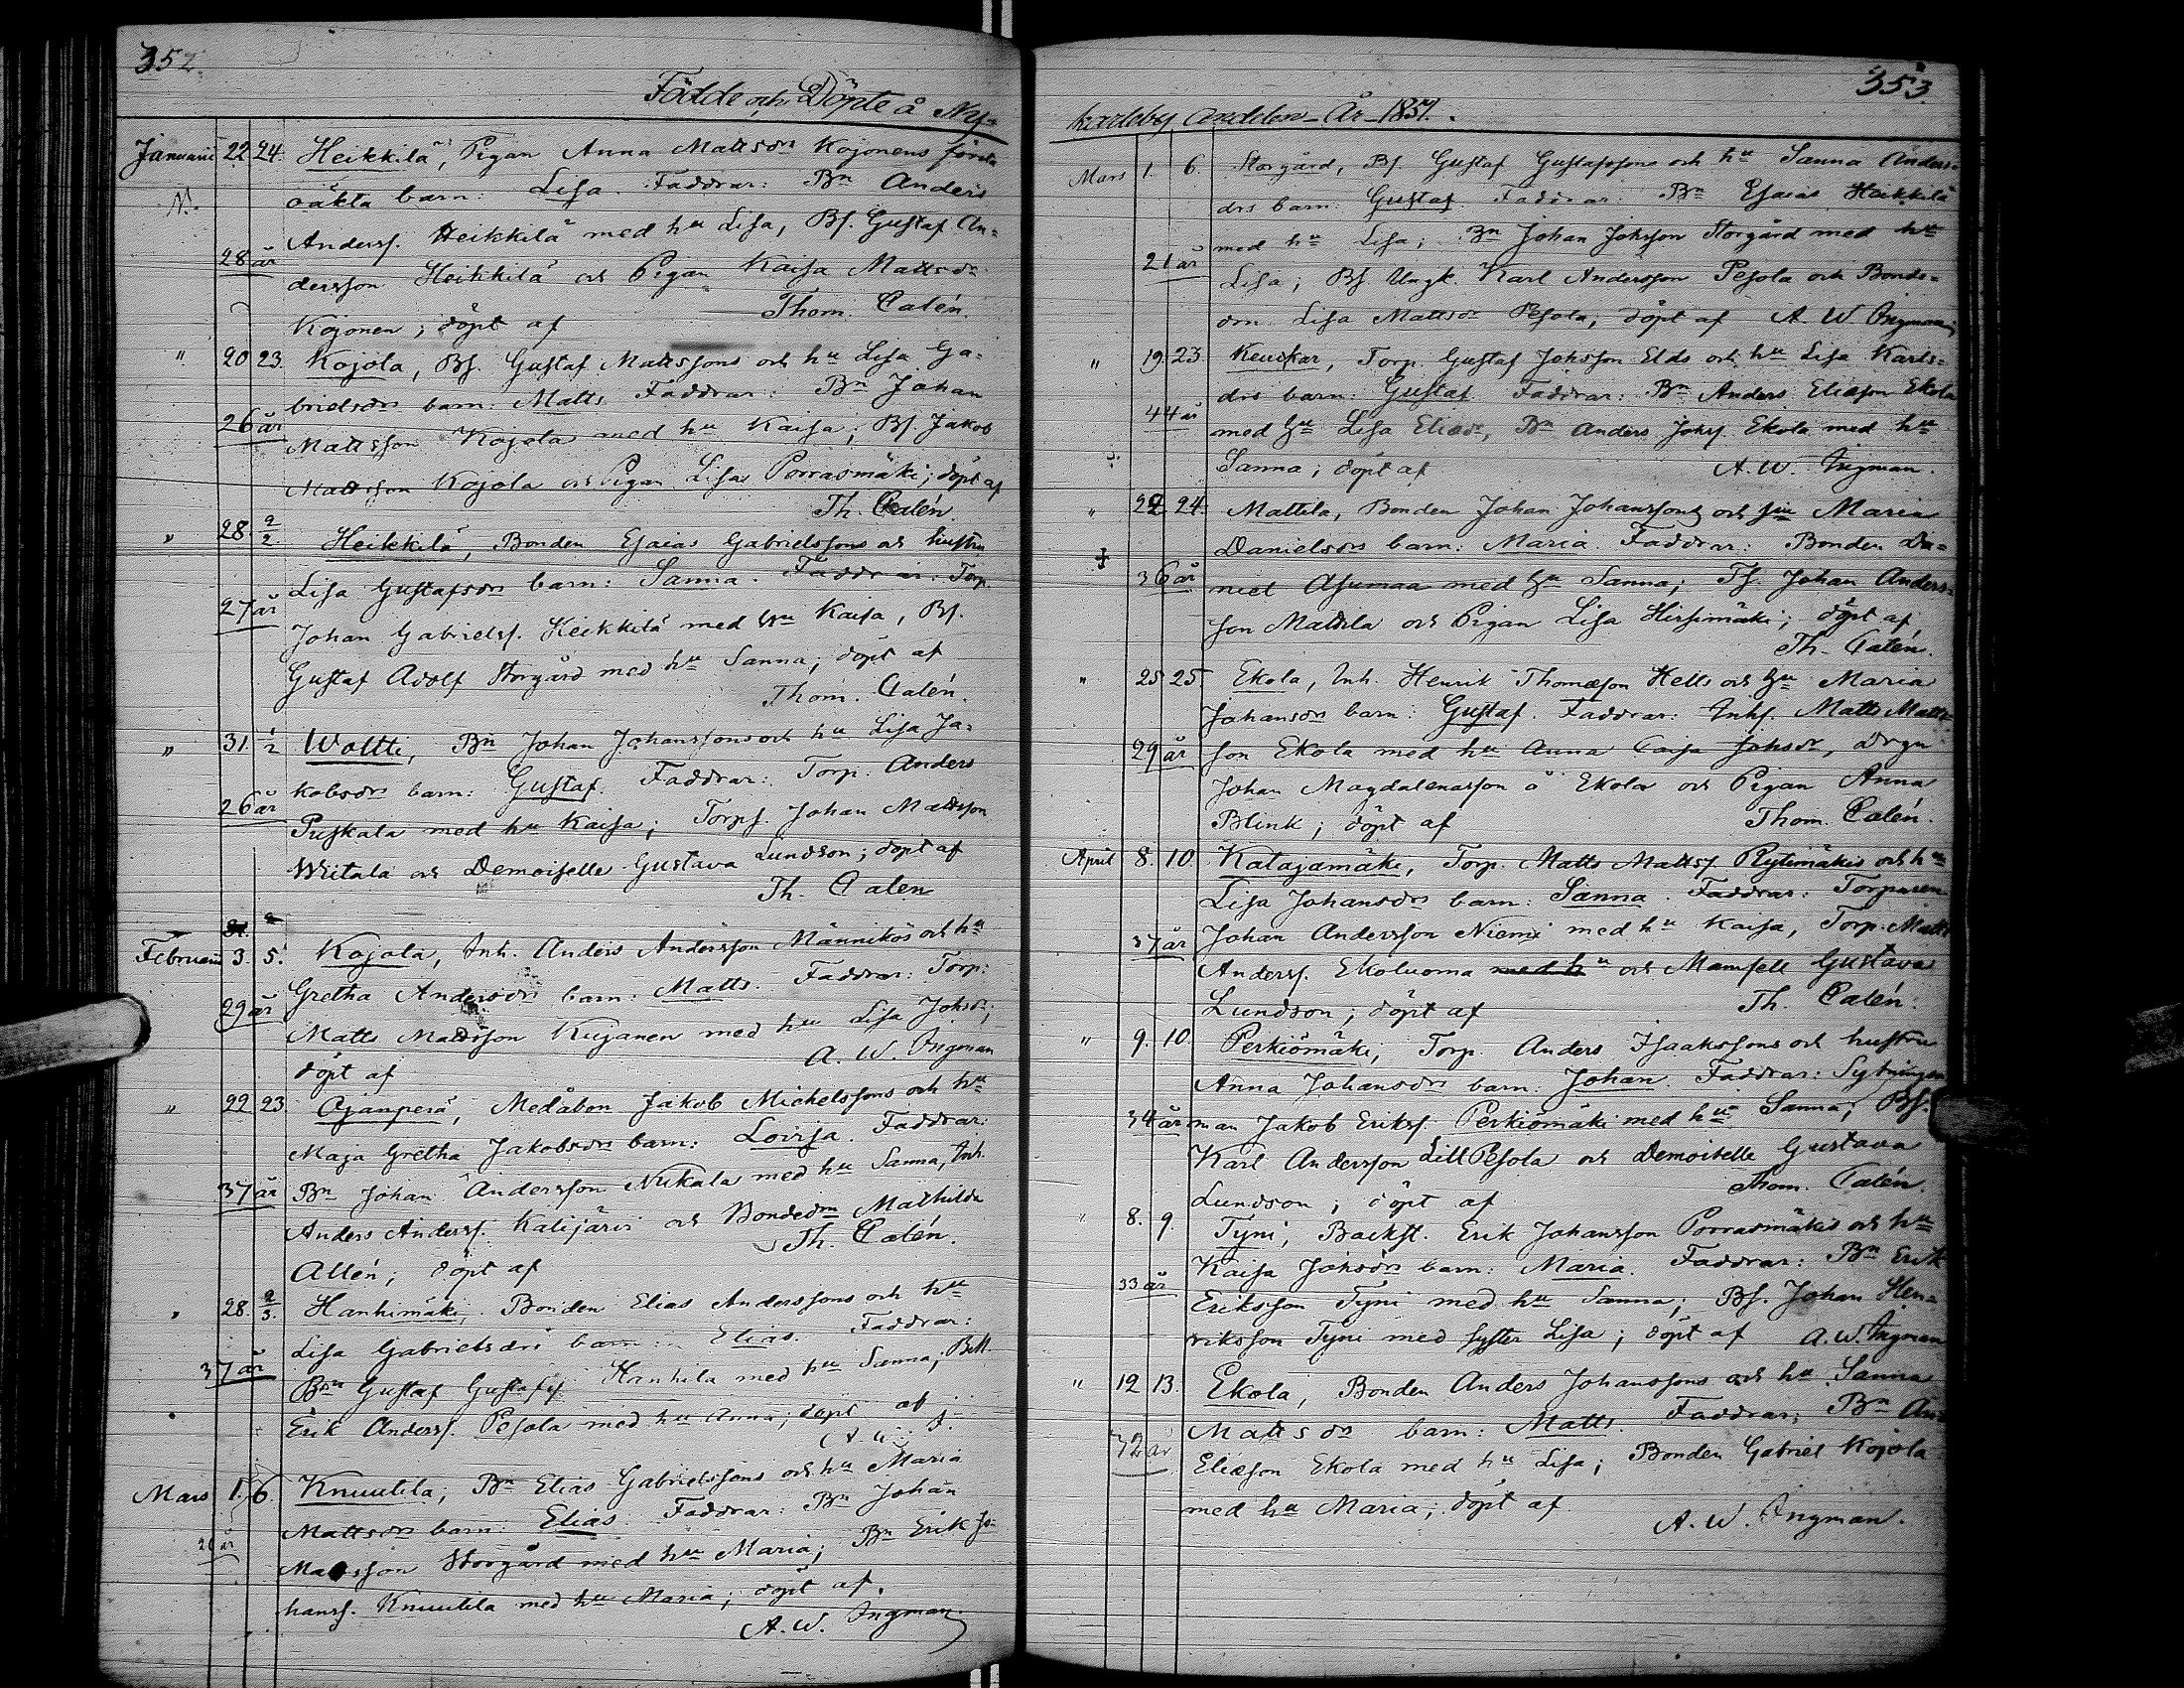 352.
Födde och Döpte å Ny-
Januarii 22 24. Heikkilä, Pigan Anna Mattsdrs Kojonens första
N. oäkta barn: Lisa. Faddrar: Bn Anders
Anderss. Heikkilä med hu Lisa, Bs. Gustaf An-
28 år
dersson Heikkilä och Pigan Kaisa Mattsdr
Kojonen; döpt af Thom. Calén.
" 20 23. Kojola, Bs. Gustaf Mattssons och hu Lisa Ga-
brielsdrs barn: Matts. Faddrar: Bn Johan
26 år
Mattsson Kojola med hu Kaisa; Bs. Jakob
Mattsson Kojola och Pigan Lisa Porrasmäki; döpt af
Th. Calén.
" 28 2/2 Heikkilä, Bonden Esaias Gabrielssons och hustru
Lisa Gustafsdrs barn: Sanna. Faddrar: Torp.
27 år
Johan Gabrielss. Heikkilä med hu Kaisa, Bs.
Gustaf Adolf Storgård med hu Sanna; döpt af
Thom. Calén.
" 31. 1/2 Woltti, Bn Johan Johanssons och hu Lisa Ja-
kobsdrs barn: Gustaf. Faddrar: Torp. Anders
26 år
Puskala med hu Kaisa; Torps. Johan Mattsson
Wiitala och Demoiselle Gustava Lundson; döpt af
Th. Calen
31. 2
Februarii 3. 5. Kojola, Inh. Anders Andersson Männikös och hu
Gretha Andersdrs barn: Matts. Faddrar: Torp:
29 år
Matts Mattsson Kujanen med hu Lisa Johsdr;
döpt af A. W. Ingman
" 22 23. Ojanperä, Medåbon Jakob Michelssons och hu
Maja Gretha Jakobsdrs barn: Lovisa. Faddrar:
37 år Bn Johan Andersson Nukala med hu Sanna, Inh.
Anders Anderss. Kalijärvi och Bondedm Mathilda
Allén; döpt af Th. Calén.
" 28. 2/3. Hanhimäki, Bonden Elias Anderssons och hu
Lisa Gabrielsdrs barn: Elias. Faddrar:
37 år
Bn Gustaf Gustafss. Hanhila med hu Sanna;
Erik Anderss. Pesola med hu Anna; döpt af
A. W. I.
Mars 1. 6. Knuutila, Bn Elias Gabrielssons och hu Maria
Mattsdrs barn: Elias. Faddrar: Bn Johan
år
Mattsson Storgård med hu Maria; Bn Erik Jo-
hanss. Knuutila med hu Maria; döpt af.
A. W. Ingman.
353.
karleby andelen År 1857.
Mars 1. 6. Storgård, Bs Gustaf Gustafssons och hu Sanna Anders-
drs barn: Gustaf. Faddrar: Bn Esaias Heikkilä
med hu Lisa; Bn Johan Johsson Storgård med hu
21 år
Lisa; Bs Ungk. Karl Andersson Pesola och Bonde-
drn Lisa Mattsdr Pesola; döpt af A. W. Ingman
" 19. 23. Keuckar, Torp. Gustaf Johsson Elds och hu Lisa Karls-
drs barn: Gustaf. Faddrar: Bn Anders Eliasson Ekola
44 år
med hu Lisa Eliasdr, Bn Anders Johss. Ekola med hu
Sanna; döpt af A. W. Ingman.
" 22. 24. Mattila, Bonden Johan Johanssons och hu Maria
Danielsdrs barn: Maria. Faddrar: Bonden Da-
36 år
niel Asumaa med hu Sanna; Ts. Johan Anders-
son Mattila och Pigan Lisa Hirsimäki; döpt af
Th. Calén.
" 25 25. Ekola, Inh. Henrik Thomasson Hells och hu Maria
Johansdrs barn: Gustaf. Faddrar: Inhs. Matts Matts-
29 år son Ekola med hu Anna Caisa Johsdr, Drgn
Johan Magdalenasson å Ekola och Pigan Anna
Blink; döpt af Thom. Calén.
April 8. 10. Katajamäki, Torp. Matts Mattss Rytimäkis och hu
Lisa Johansdrs barn: Sanna. Faddrar: Torparen
37 år Johan Andersson Niemi med hu Kaisa, Torp. Matts
Anderss. Ekoluoma med hu och Mamsell Gustava
Lundson; döpt af Th. Calén.
" 9. 10. Perkiömäki, Torp. Anders Isaakssons och hustru
Anna Johansdrs barn: Johan. Faddrar: Sytnings-
34 år man Jakob Erikss. Perkiömäki med hu Sanna; Bs.
Karl Andersson Lill Pesola och Demoiselle Gustava
Lundson; döpt af Thom. Calén.
" 8. 9. Tyni, Backst. Erik Johansson Porrasmäkis och hu
Kaisa Johsdrs barn: Maria. Faddrar: Bn Erik
33 år
Eriksson Tyni med hu Sanna; Bs. Johan Hen-
riksson Tyni med syster Lisa; döpt af A. W. Ingman
" 12 13. Ekola, Bonden Anders Johanssons och hu Sanna
Mattsdrs barn: Matts. Faddrar: Bn An-
32 år
Eliasson Ekola med hu Lisa; Bonden Gabriel Kojola
med hu Maria; döpt af
A. W. Ingman.